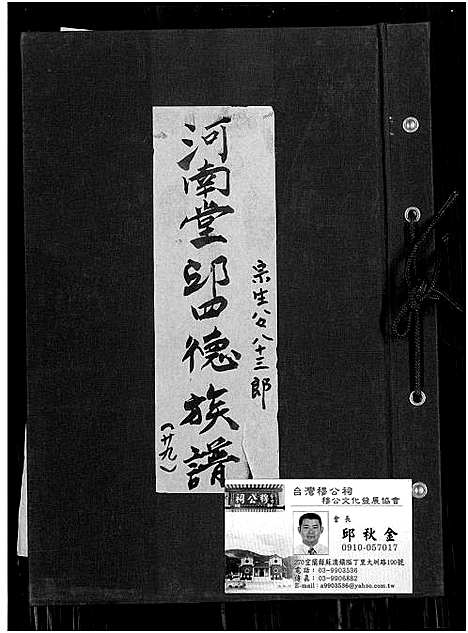 河南堂邱四德族譜
宗生公八十三郎
(廿九)
穆公祠
台灣穆公祠
穆公文化發展協會
會長
邱秋金
0910-057017
270宜蘭縣蘇澳鎮隘丁里大圳路190號
電話：03-9903536
傳真：03-9906882
E-mail：a9903536@yahoo.com.tw